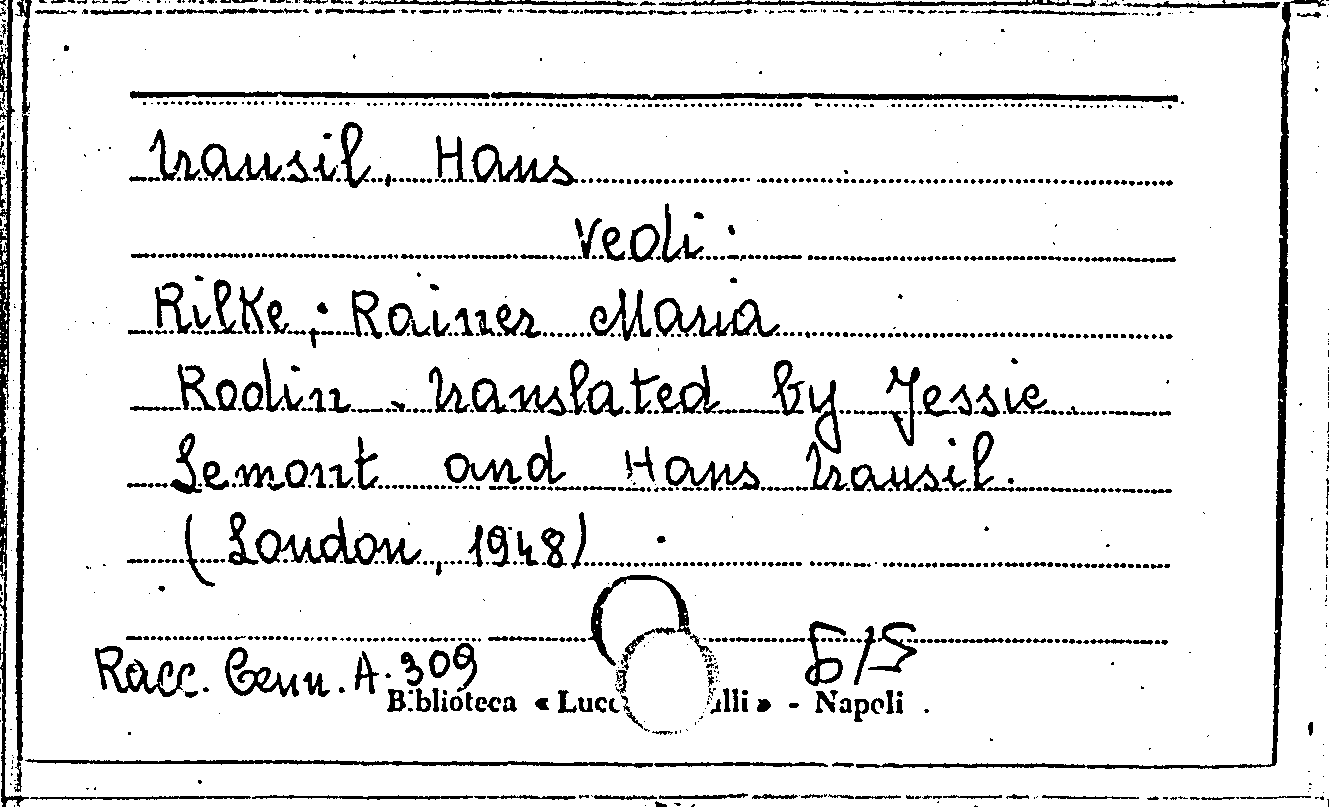 Trausil, Hans
Vedi:
Rilke, Rainer Maria
Rodin - Translated by Jessie
Lemont and Hans Trausil.
(London, 1948)
Racc. Cenn. A. 309
Biblioteca « » - Napoli